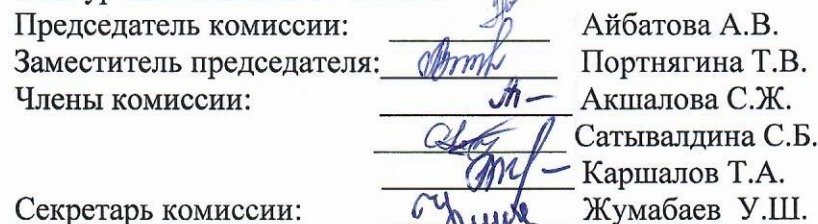 Председатель комиссии: Айбатова А.В.
Заместитель председателя: Портнягина Т.В.
Члены комиссии: Акшалова С.Ж.
Сатывалдина С.Б.
Каршалов Т.А.
Секретарь комиссии: Жумабаев У.Ш.